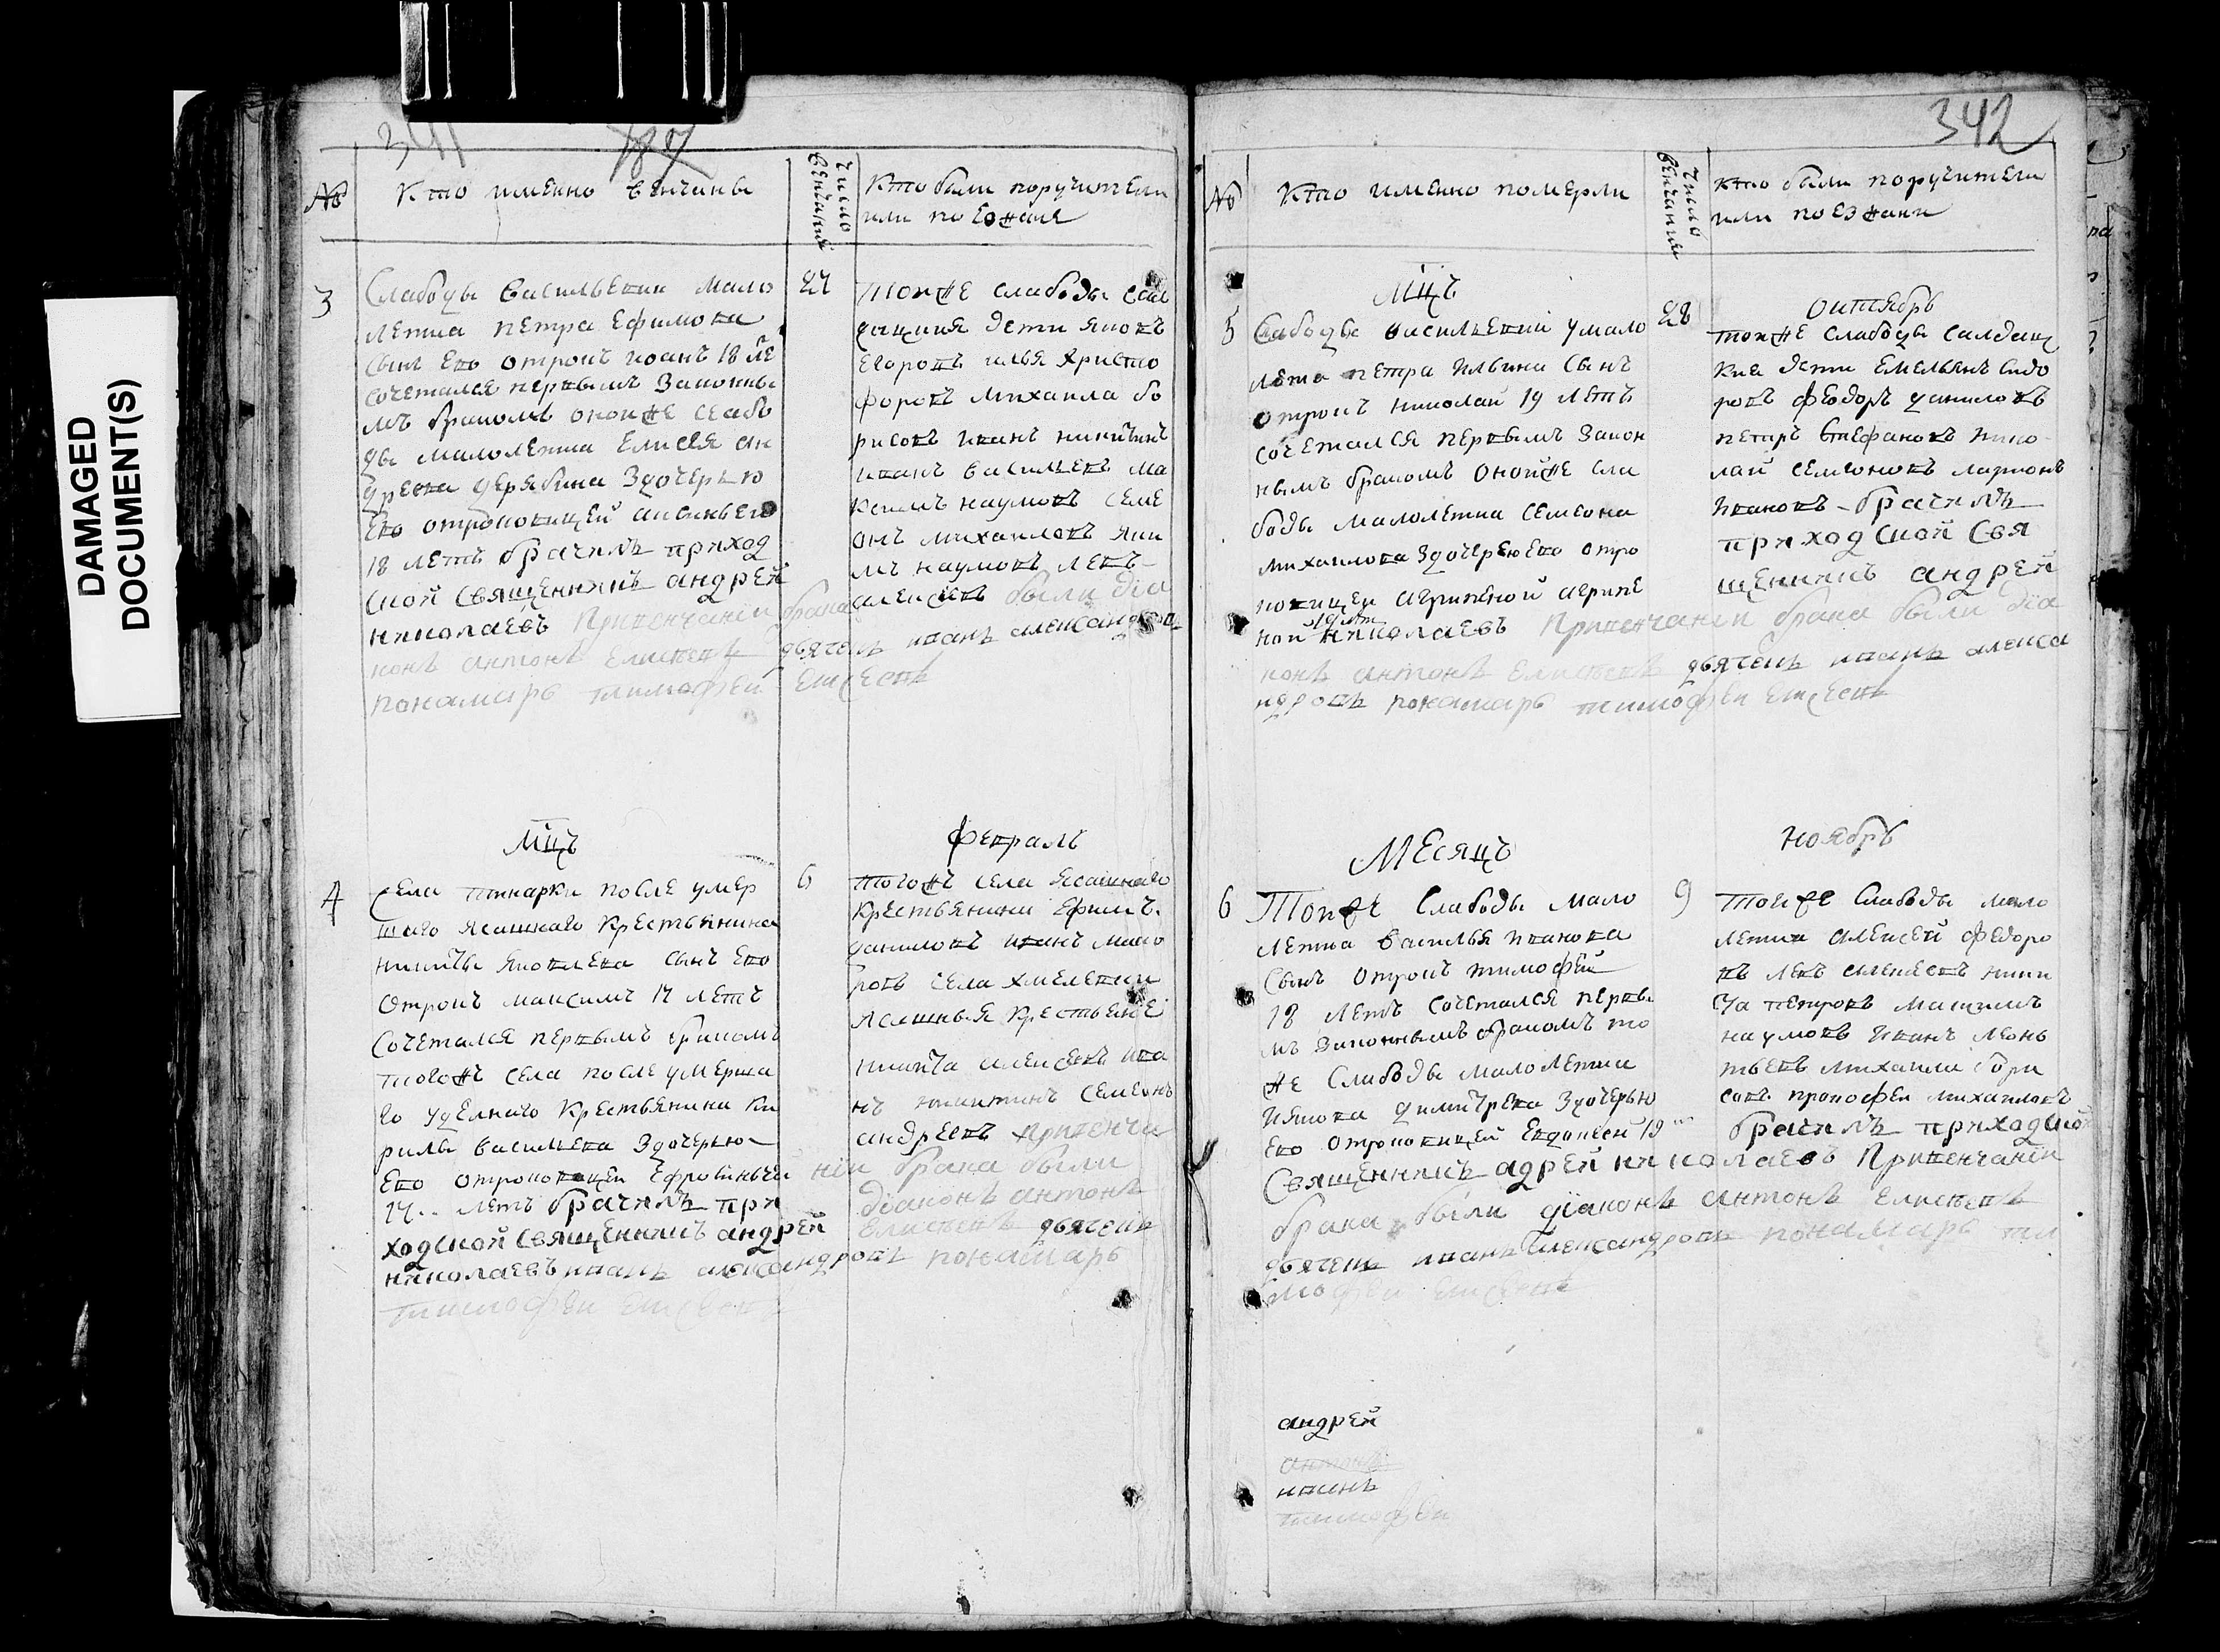 DAMAGED
DOCUMENT(S)
341
187
№
Кто именно венчаны
число
венчания
Кто были поручители
или поезжане
3
Слабоды васильевки мало
летка петра Ефимова
сынъ Ево отрокъ иоанъ 18 ле
сочетался первымъ законны
мъ бракомъ оной же слабо
ды малолетка Елисея ан
дреева дерябина здочерью
Ево отроковицей
18 летъ брачилъ приход
ской священникъ андрей
николаевъ Привенчании брака
конъ антонъ Елисеевъ дьячекъ иванъ александровъ
понамарь тимофей Елисеевъ
24
тойже слабоды сал
дацкия дети яковъ
Егоровъ илья христо
форовъ михаила бо
рисовъ иванъ никитинъ
иванъ васильевъ ма
ксимъ наумовъ семе
онъ михаиловъ яки
мъ наумовъ левъ
алексеевъ были діа
Мцъ
февраль
4
села тинарки после умер
шаго ясашнаго крестьянина
никиты яковлева сынъ Ево
отрокъ максимъ 17 летъ
сочетался первымъ бракомъ
тогожъ села после умерша
го уделнаго крестьянина ки
рилы васильева здочерью
Ево отроковицей Ефросиньей
17 летъ брачилъ при
ходской священникъ андрей
николаевъ иванъ александровъ понамарь
тимофей Елисеевъ
6
тогожъ села ясашнаго
крестьянина Ефимъ
даниловъ иванъ мака
ровъ села хмелевки
ясашныя крестьяне
никита алексеевъ ива
нъ никитинъ семеонъ
андреевъ привенча
нии брака были
діаконъ антонъ
Елисеевъ дьячекъ
342
№
Кто именно померли
число
венчания
кто были поручители
или поезжани
Мцъ
октябрь
5
Слабоды васильевки умало
летка петра ильина сынъ
отрокъ николай 19 летъ
сочетался первымъ закон
нымъ бракомъ оной же сла
боды малолетка семеона
михаилова здочерью Ево отро
ковицей
19 летъ
ной николаевъ Привенчании брака были діа
конъ антонъ Елисеевъ дьячекъ иванъ алекса
ндровъ понамарь тимофей Елисеевъ
28
тойже слабоды салдацк
кия дети Емельянъ сидо
ровъ феодоръ даниловъ
петръ стефановъ нико
лай семеоновъ ларионъ
ивановъ брачилъ
приходской свя
щенникъ андрей
Месяцъ
ноябрь
6
Тойже слабоды мало
летка василья иванова
сынъ отрокъ тимофей
18 летъ сочетался первы
мъ законнымъ бракомъ то
же слабоды малолетка
якова димитрева здочерью
Ево отроковицей Евдокией 19
священникъ адрей николаевъ Привенчании
брака были діаконъ антонъ Елисеевъ
дьячекъ иванъ александровъ понамарь ти
мофей Елисеевъ
9
тойже слабоды мало
летки алексей федоро
въ левъ алексеевъ ники
та петровъ максимъ
наумовъ иванъ леонь
тьевъ михаила бори
совъ прокофей михаиловъ
брачилъ приходской
андрей
антонъ
иванъ
тимофей